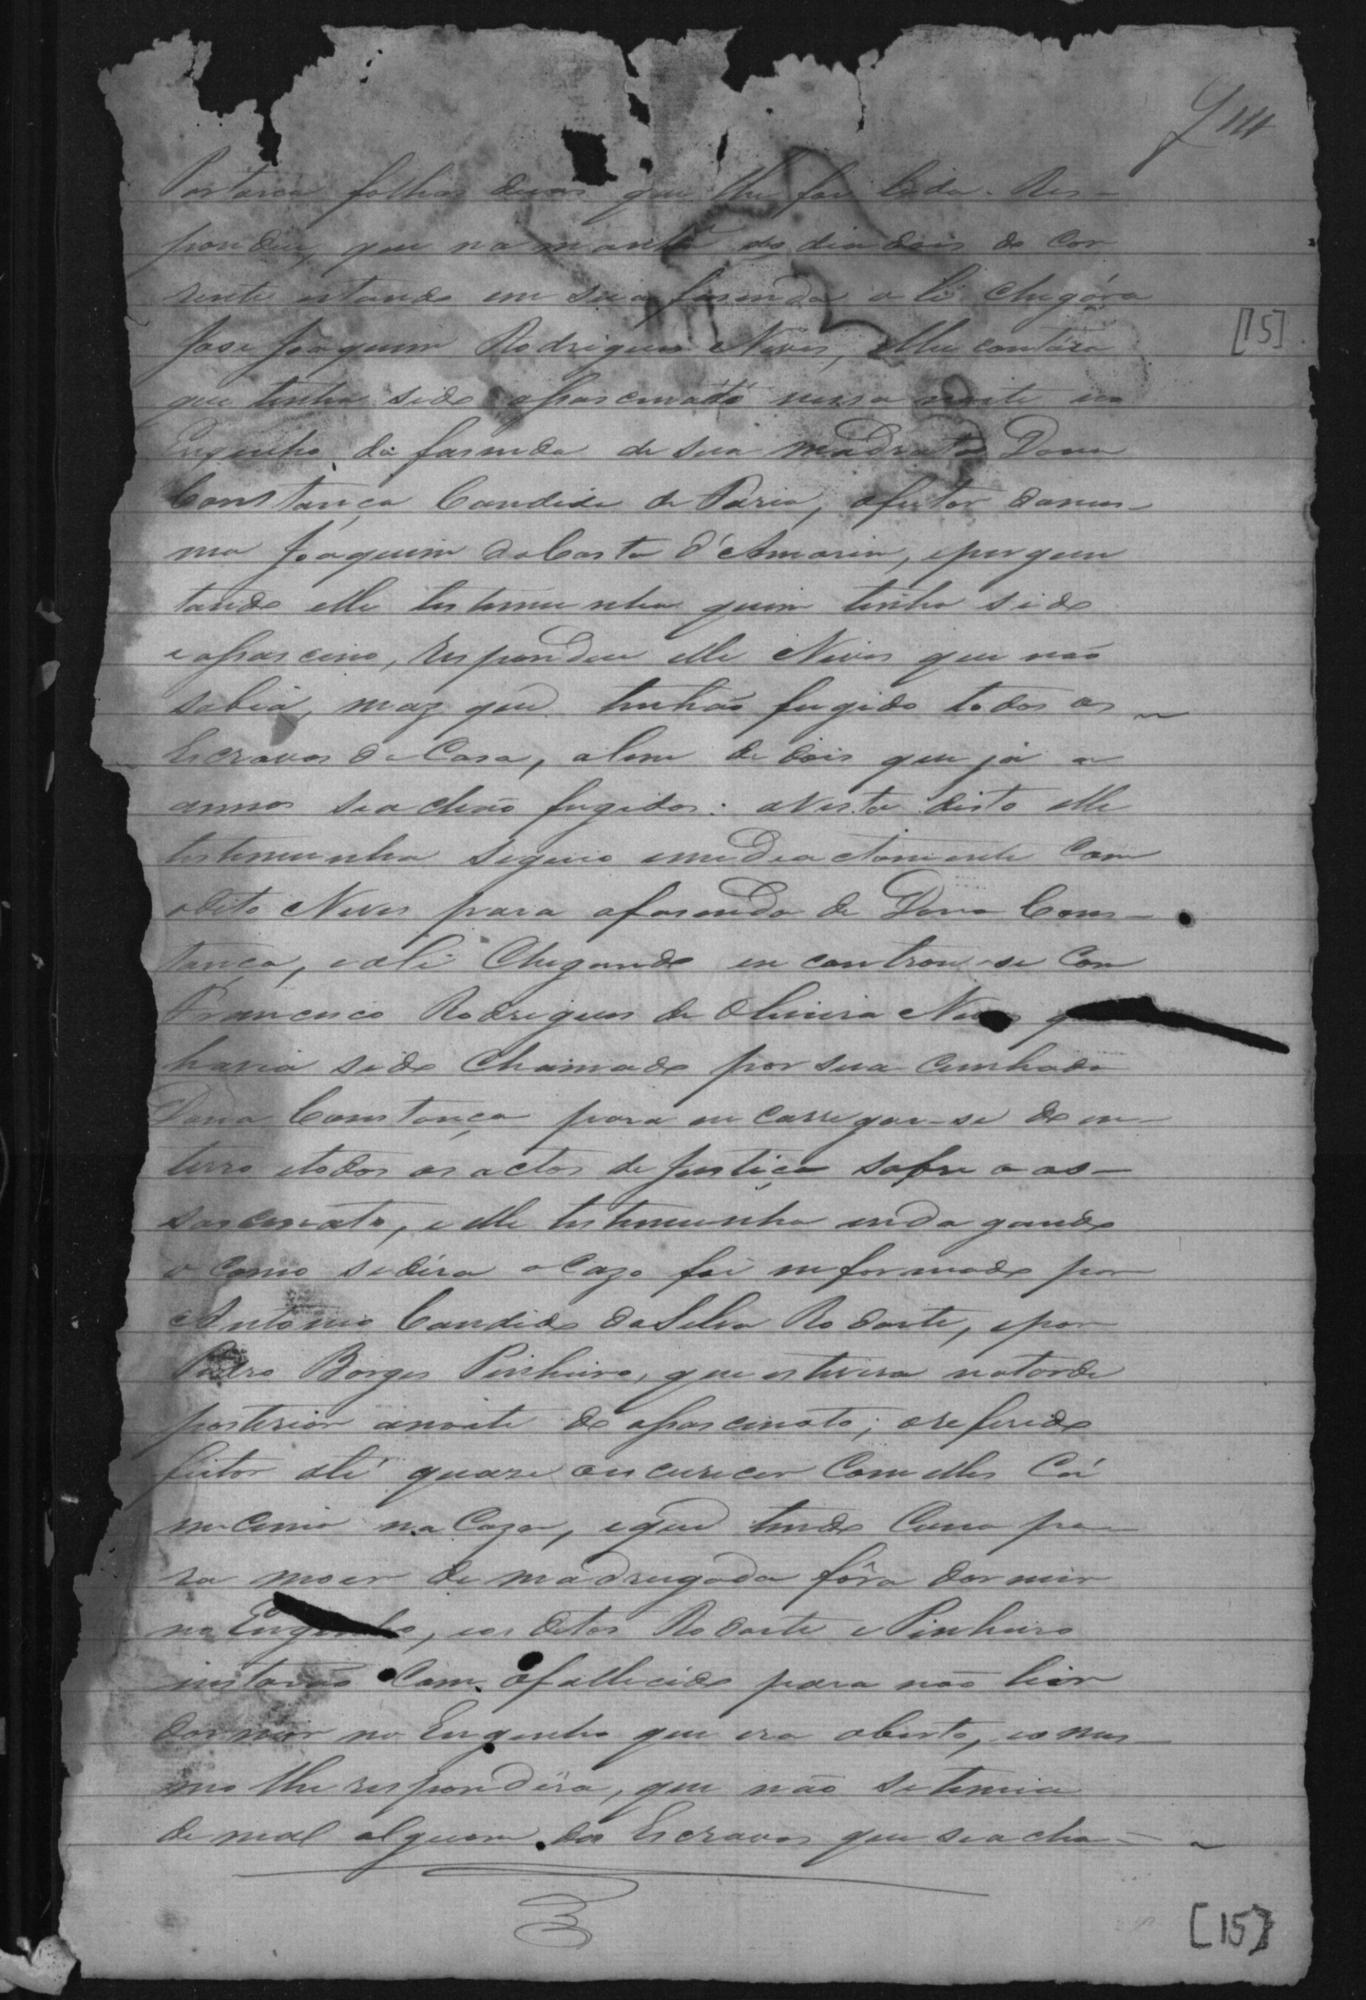 Portaria folhas duas que lhe foi lida. Res-
pondeu, que na manhã do dia dois do cor
rente estando em sua fasenda ali chegára
[15]
José Joaquim Rodrigues Neves, elhe contára
que tinha sido assascinado nessa noite no
Engenho da fasenda de sua madrasta Dona
Constança Candida de Paria, ofeitor da mes-
ma Joaquim da Costa d'Amorim, epergun
tando elle testemunha quem tinha sido
o assascino, respondeu elle Neves que não
sabia, maz que tinhão fugido todos os
Escravos da Casa, alem de dois que já a
annos seachão fugidos: avista disto elle
testemunha seguio immediactamente com
odito Neves para afasenda de Dona Cons-
tança, eali chegando encontrou-se com
Francisco Rodrigues de Oliveira Neves
havia sido chamado por sua cunhada
Dona Constança para encarregar-se do en-
terro etodos os actos de Justiça sobre o as-
sascinato, e elle testemunha indagando
o como sedéra o cazo foi informado por
Antonio Candido da Silva Rodarte, epor
Pedro Borges Pinheiro, que estivera natarde
posterior anoite do assascinato; oreferido
feitor até quaze escurecer com elles
na Caza, eque tendo Cana pa-
ra moer de madrugada fôra dormir
no Engenho, eos ditos Rodarte e Pinheiro
instarão com ofallecido para não hir
dormir no Engenho que era aberto, eomes-
mo lhe respondêra, que não setemia
de mal algum dos Escravos que seacha-
[15]